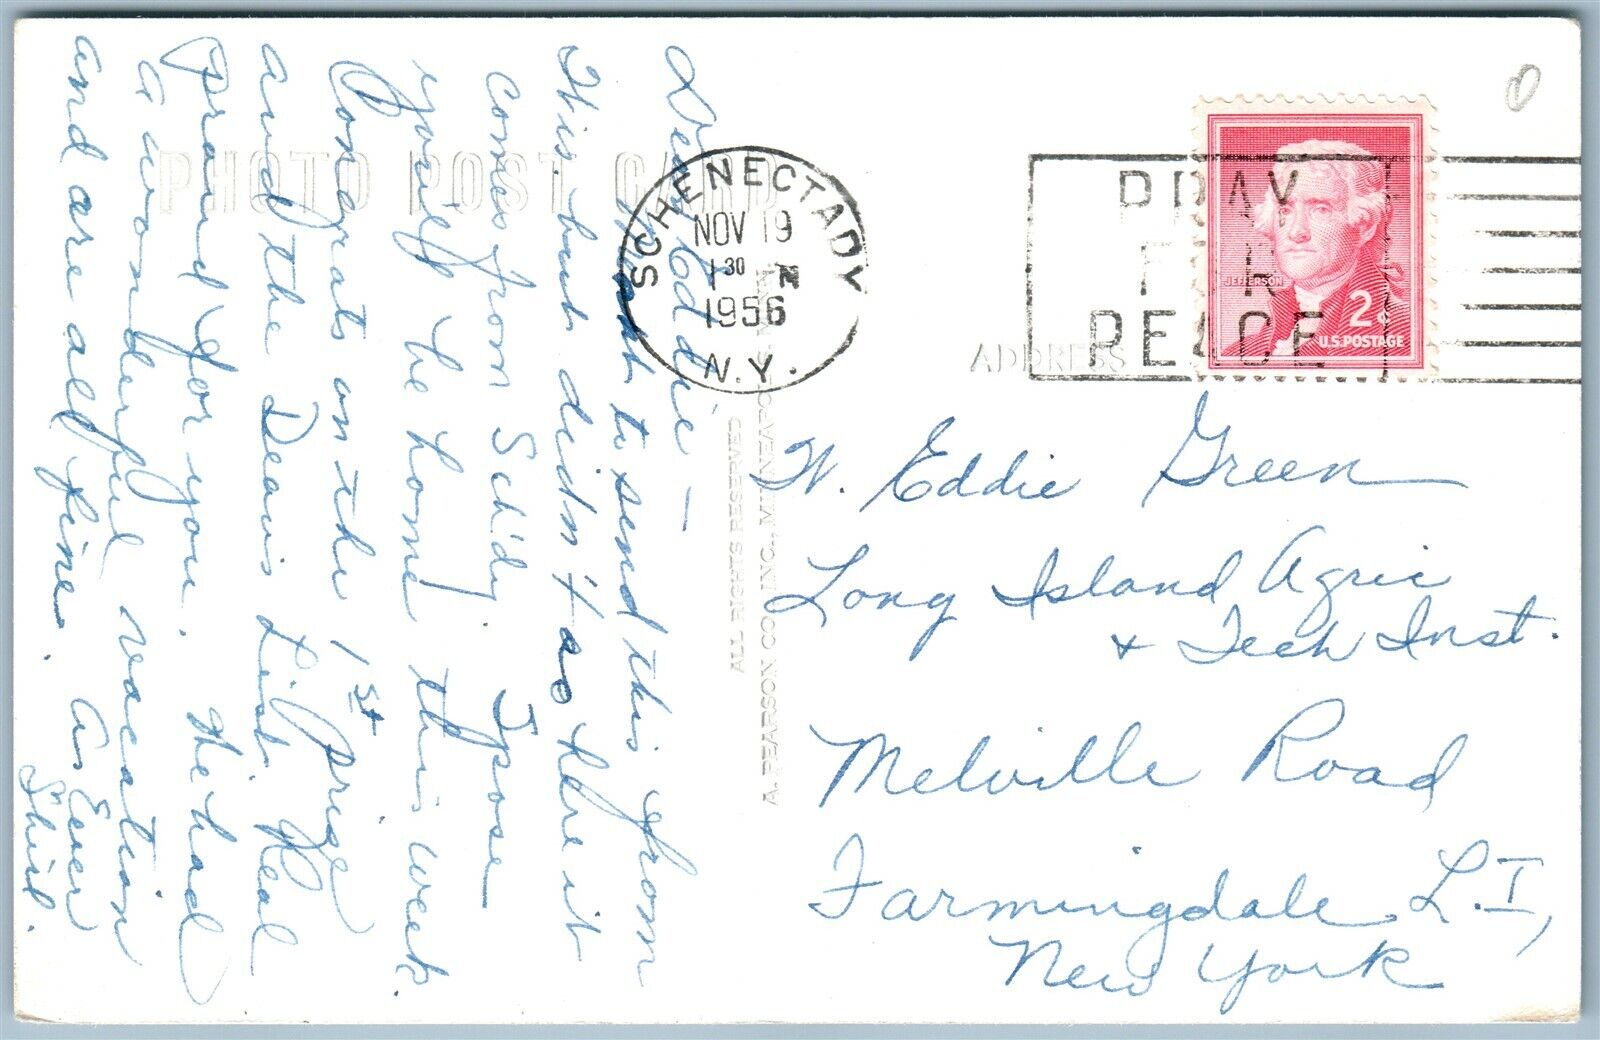 PHOTO POST CARD
Dear Eddie —
Meant to send this from
this. but didn't so here it
comes from Sch'dy. Spose
you'll be home this week.
Congrats on the 1st prize
and the Dean's List. Real
proud for you. We had
a wonderful vacation
and are all fine. As Ever
Shirl.
SCHENECTADY
NOV 19
1 30 M
1956
N.Y.
PRAY
FOR
PEACE
JEFFERSON
2¢
U.S. POSTAGE
ADDRESS
ALL RIGHTS RESERVED
A. PEARSON CO. INC., MINNEAPOLIS, MINN.
W. Eddie Green
Long Island Agric
+ Tech Inst.
Melville Road
Farmingdale L.I,
New York